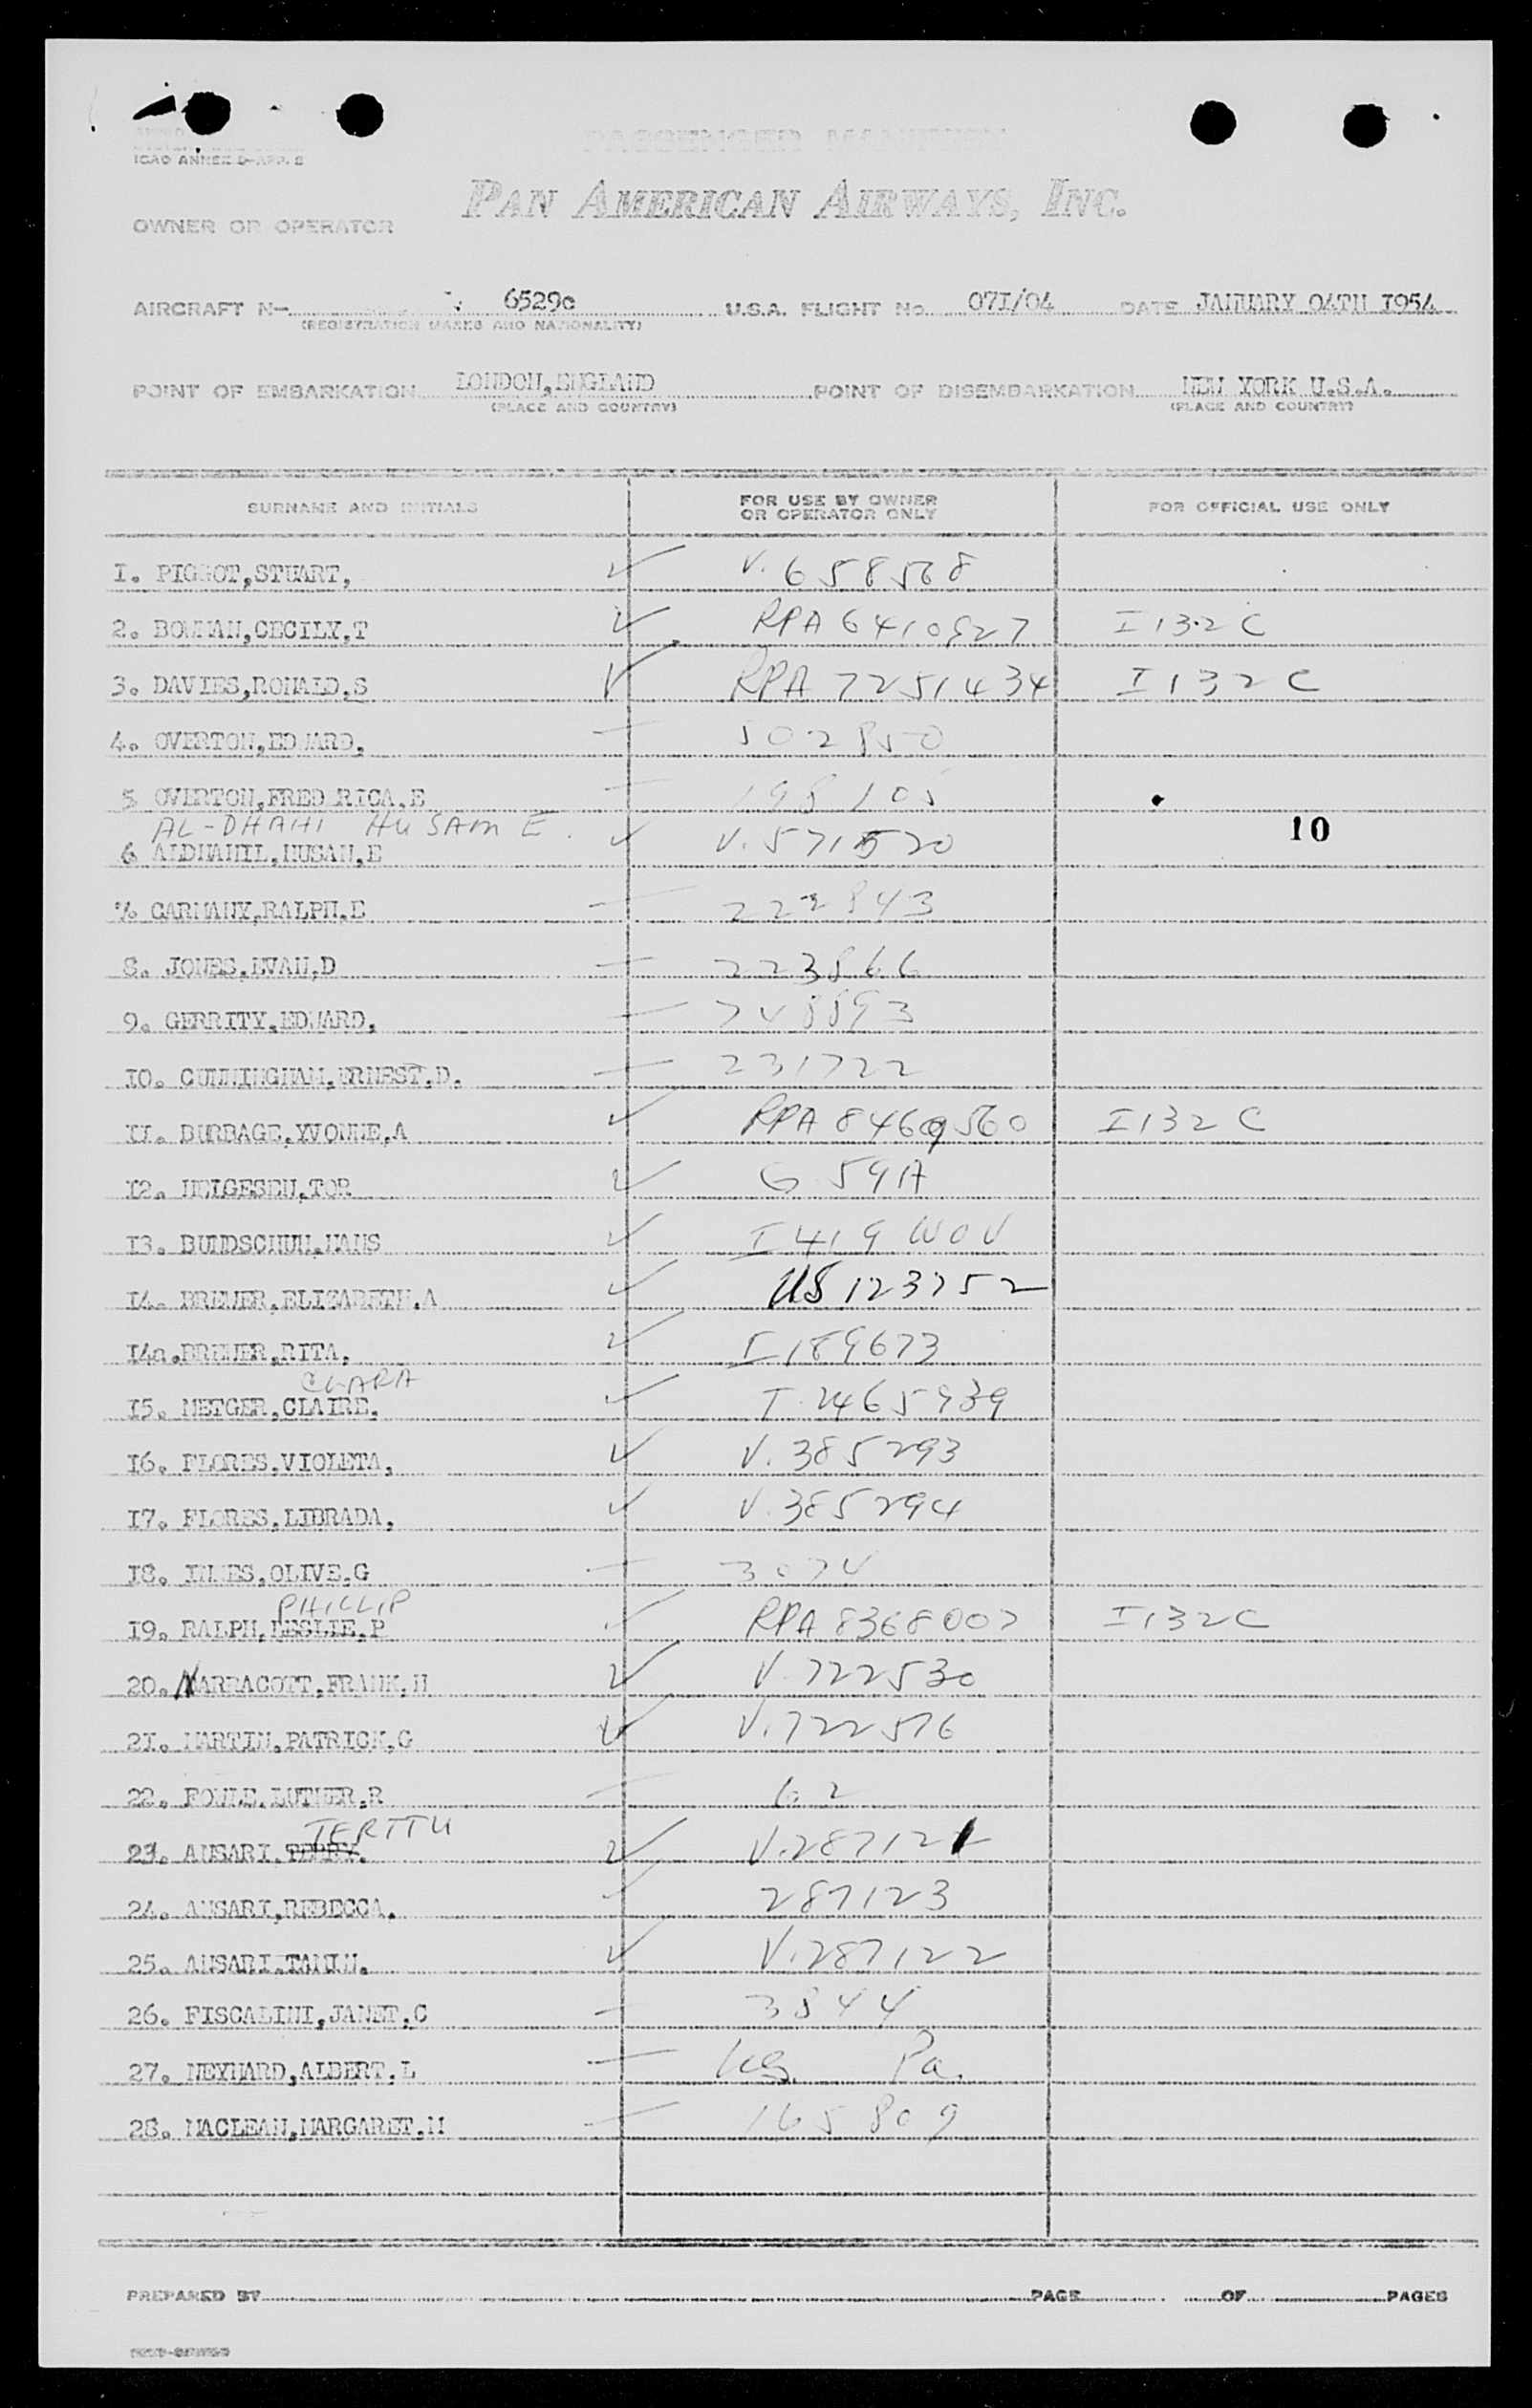 ICAO ANNEX 9-APP. 2
PASSENGER MANIFEST
PAN AMERICAN AIRWAYS, INC.
OWNER OR OPERATOR
AIRCRAFT N- 6529c U.S.A. FLIGHT No. 07I/04 DATE JANUARY 04TH I954
(REGISTRATION MARKS AND NATIONALITY)
POINT OF EMBARKATION LONDON,ENGLAND POINT OF DISEMBARKATION NEW YORK U.S.A.
(PLACE AND COUNTRY) (PLACE AND COUNTRY)
SURNAME AND INITIALS FOR USE BY OWNER OR OPERATOR ONLY FOR OFFICIAL USE ONLY
I. PIGGOT,STUART, ✓ V. 658568
2. BOWMAN,CECILY,T ✓ RPA 6410927 I 132 C
3. DAVIES,RONALD,S ✓ RPA 7251434 I 132 C
4. OVERTON,EDWARD, — 502850
5 OVERTON,FREDRICA,E — 198105
AL-DHAHI HUSAM E. 10
6 ALDHAHIL,HUSAN,E ✓ V. 571520
7. CARMANY,RALPH,E — 222843
8. JONES,EVAN,D — 223866
9. GERRITY,EDWARD, —
IO. CUNNINGHAM,ERNEST,D. — 231722
II. BURBAGE,YVONNE,A ✓ RPA 8469560 I 132 C
I2. HELGESEN,TOR ✓ G 59A
I3. BUNDSCHUH,HANS ✓ I 419 WOV
I4. BREWER,ELIZABETH,A ✓ US 123752
I4a.BREWER,RITA, ✓ I 189673
CLARA
I5. METGER,CLAIRE, ✓ T. 2465939
I6. FLORES,VIOLETA, ✓ V. 385293
I7. FLORES,LIBRADA, ✓ V. 385294
I8. INNES,OLIVE,G — 3074
PHILLIP
I9. RALPH,LESLIE,P ✓ RPA 8368007 I 132 C
20. NARRACOTT,FRANK,H ✓ V. 722530
2I. MARTIN,PATRICK,G ✓ V. 722576
22. FOWLE,LUTHER,R — 62
TERTTU
23. ANSARI,TERRY. ✓ V. 287121
24. ANSARI,REBECCA. ✓ 287123
25. ANSARI,TAMIM. ✓ V. 287122
26. FISCALINI,JANET,C — 3844
27. MEYHARD,ALBERT,L — US. Pa.
28. MACLEAN,MARGARET,M — 165809
PREPARED BY PAGE OF PAGES